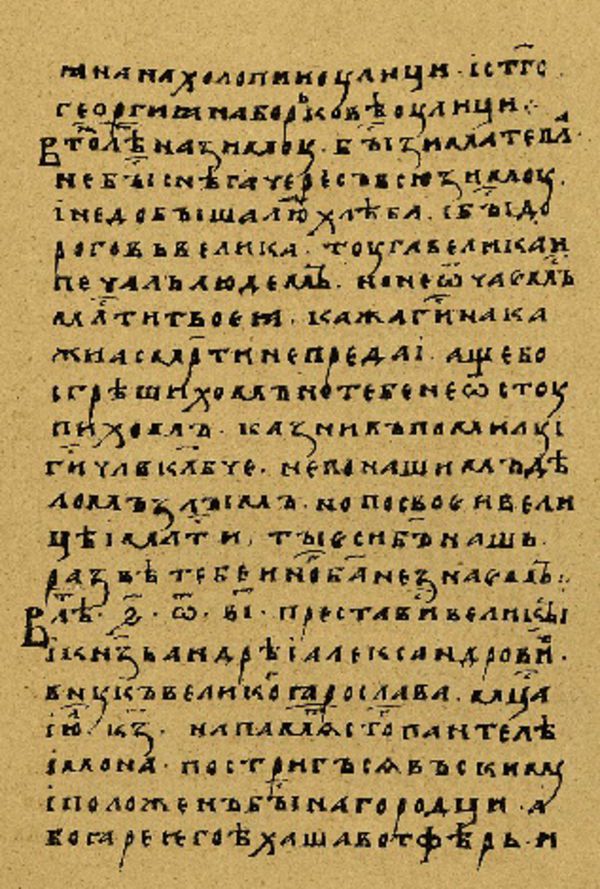 ꙗна на холопии оулици · і ст҃го
георгиꙗ на борьковѣ оулици ⁘
В то лѣ҃ на зимоу · бы҃ зима тепла ·
не бы снѣга чересъ всю зимоу ·
і не добыша лю҃ хлѣба · і бы҃ до
роговь велика · тоуга велика и
печаль людемъ · но не ѿчаемъ
мл҃ти твоеꙗ · кажа г҃и нака
жи а смр҃ти не предаі · аще бо
сгрѣшихомъ но тебе не ѿстоу
пихомъ · казнивъ помилуі
г҃и чл҃вкл҃бче · не по нашимъ дѣ
ломъ злымъ · но по своеи вели
цѣі мл҃ти · ты еси б҃ъ нашь ·
развѣ тебе иного б҃а не знаемъ ⁘
В лѣ҃ · ҂ѕ҃ · ѿ҃ · в҃і · престави великыі
і кнзь андрѣі александрови ·
внукъ велико ꙗрослава · мц҃а
ію҃ · к҃з · на памѧ҃ ст҃го пантелѣ
імона · постригъсѧ въ скиму
і положенъ бы҃ на городци · а
богаре иго ѣхаша во тфѣрь · и